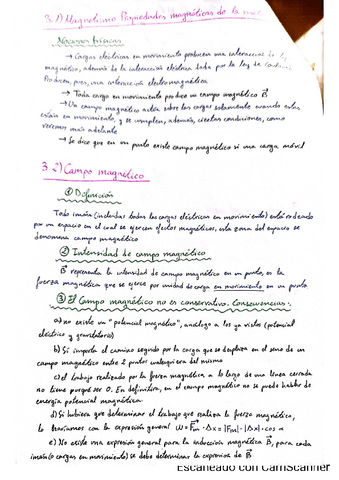 3.1) Magnetismo Propiedades magnéticas de la
Nociones básicas
→ Cargas eléctricas en movimiento producen una interacción de
magnético, además de la interacción eléctrica dada por la ley de Coulomb.
Producen, pues, una interacción electromagnética
→ Toda carga en movimiento produce un campo magnético B⃗
→ Un campo magnético actúa sobre las cargas solamente cuando estas
están en movimiento, y se cumplen, además, ciertas condiciones, como
veremos más adelante
→ Se dice que en un punto existe campo magnético si una carga móvil
3.2) Campo magnético
① Definición
Todo imán (incluidas todas las cargas eléctricas en movimiento) está rodeado
por un espacio en el cual se ejercen efectos magnéticos, esta zona del espacio se
denomina campo magnético
② Intensidad de campo magnético
B⃗ representa la intensidad de campo magnético en un punto, es la
fuerza magnética que se ejerce por unidad de carga en movimiento en un punto.
③ El Campo magnético no es conservativo. Consecuencias:
a) no existe un "potencial magnético", análogo a los ya vistos (potencial
eléctrico y gravitatorio)
b) Sí importa el camino seguido por la carga que se desplaza en el seno de un
campo magnético entre 2 puntos cualesquiera del mismo
c) el trabajo realizado por la fuerza magnética a lo largo de una línea cerrada
no tiene porque ser 0. En definitiva, en el campo magnético no se puede hablar de
energía potencial magnética.
d) Si hubiera que determinar el trabajo que realiza la fuerza magnética,
lo haríamos con la expresión general W = F⃗m · Δx = |Fm| · |Δx| · cos α
e) No existe una expresión general para la inducción magnética B⃗, para cada
imán (o cargas en movimiento) se debe determinar la expresión de B⃗
Escaneado con CamScanner